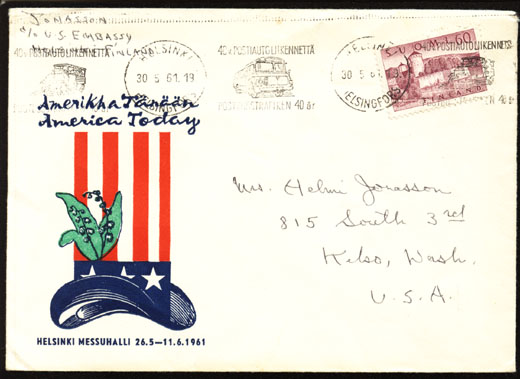 Jonasson
c/o U.S. Embassy
Helsinki, Finland
40 v. POSTIAUTOLIIKENNETTÄ
HELSINKI
30 5 61. 19
HELSINGFORS
POSTDILIGENSTRAFIKEN 40 år
HELSINKI
30 5 61. 19
HELSINGFORS
40 v. POSTIAUTOLIIKENNETTÄ
40 år
SUOMI 60
FINLAND
Amerikka Tänään
America Today
Mrs. Helmi Jonasson
815 South 3rd
Kelso, Wash.
U.S.A.
HELSINKI MESSUHALLI 26.5–11.6.1961